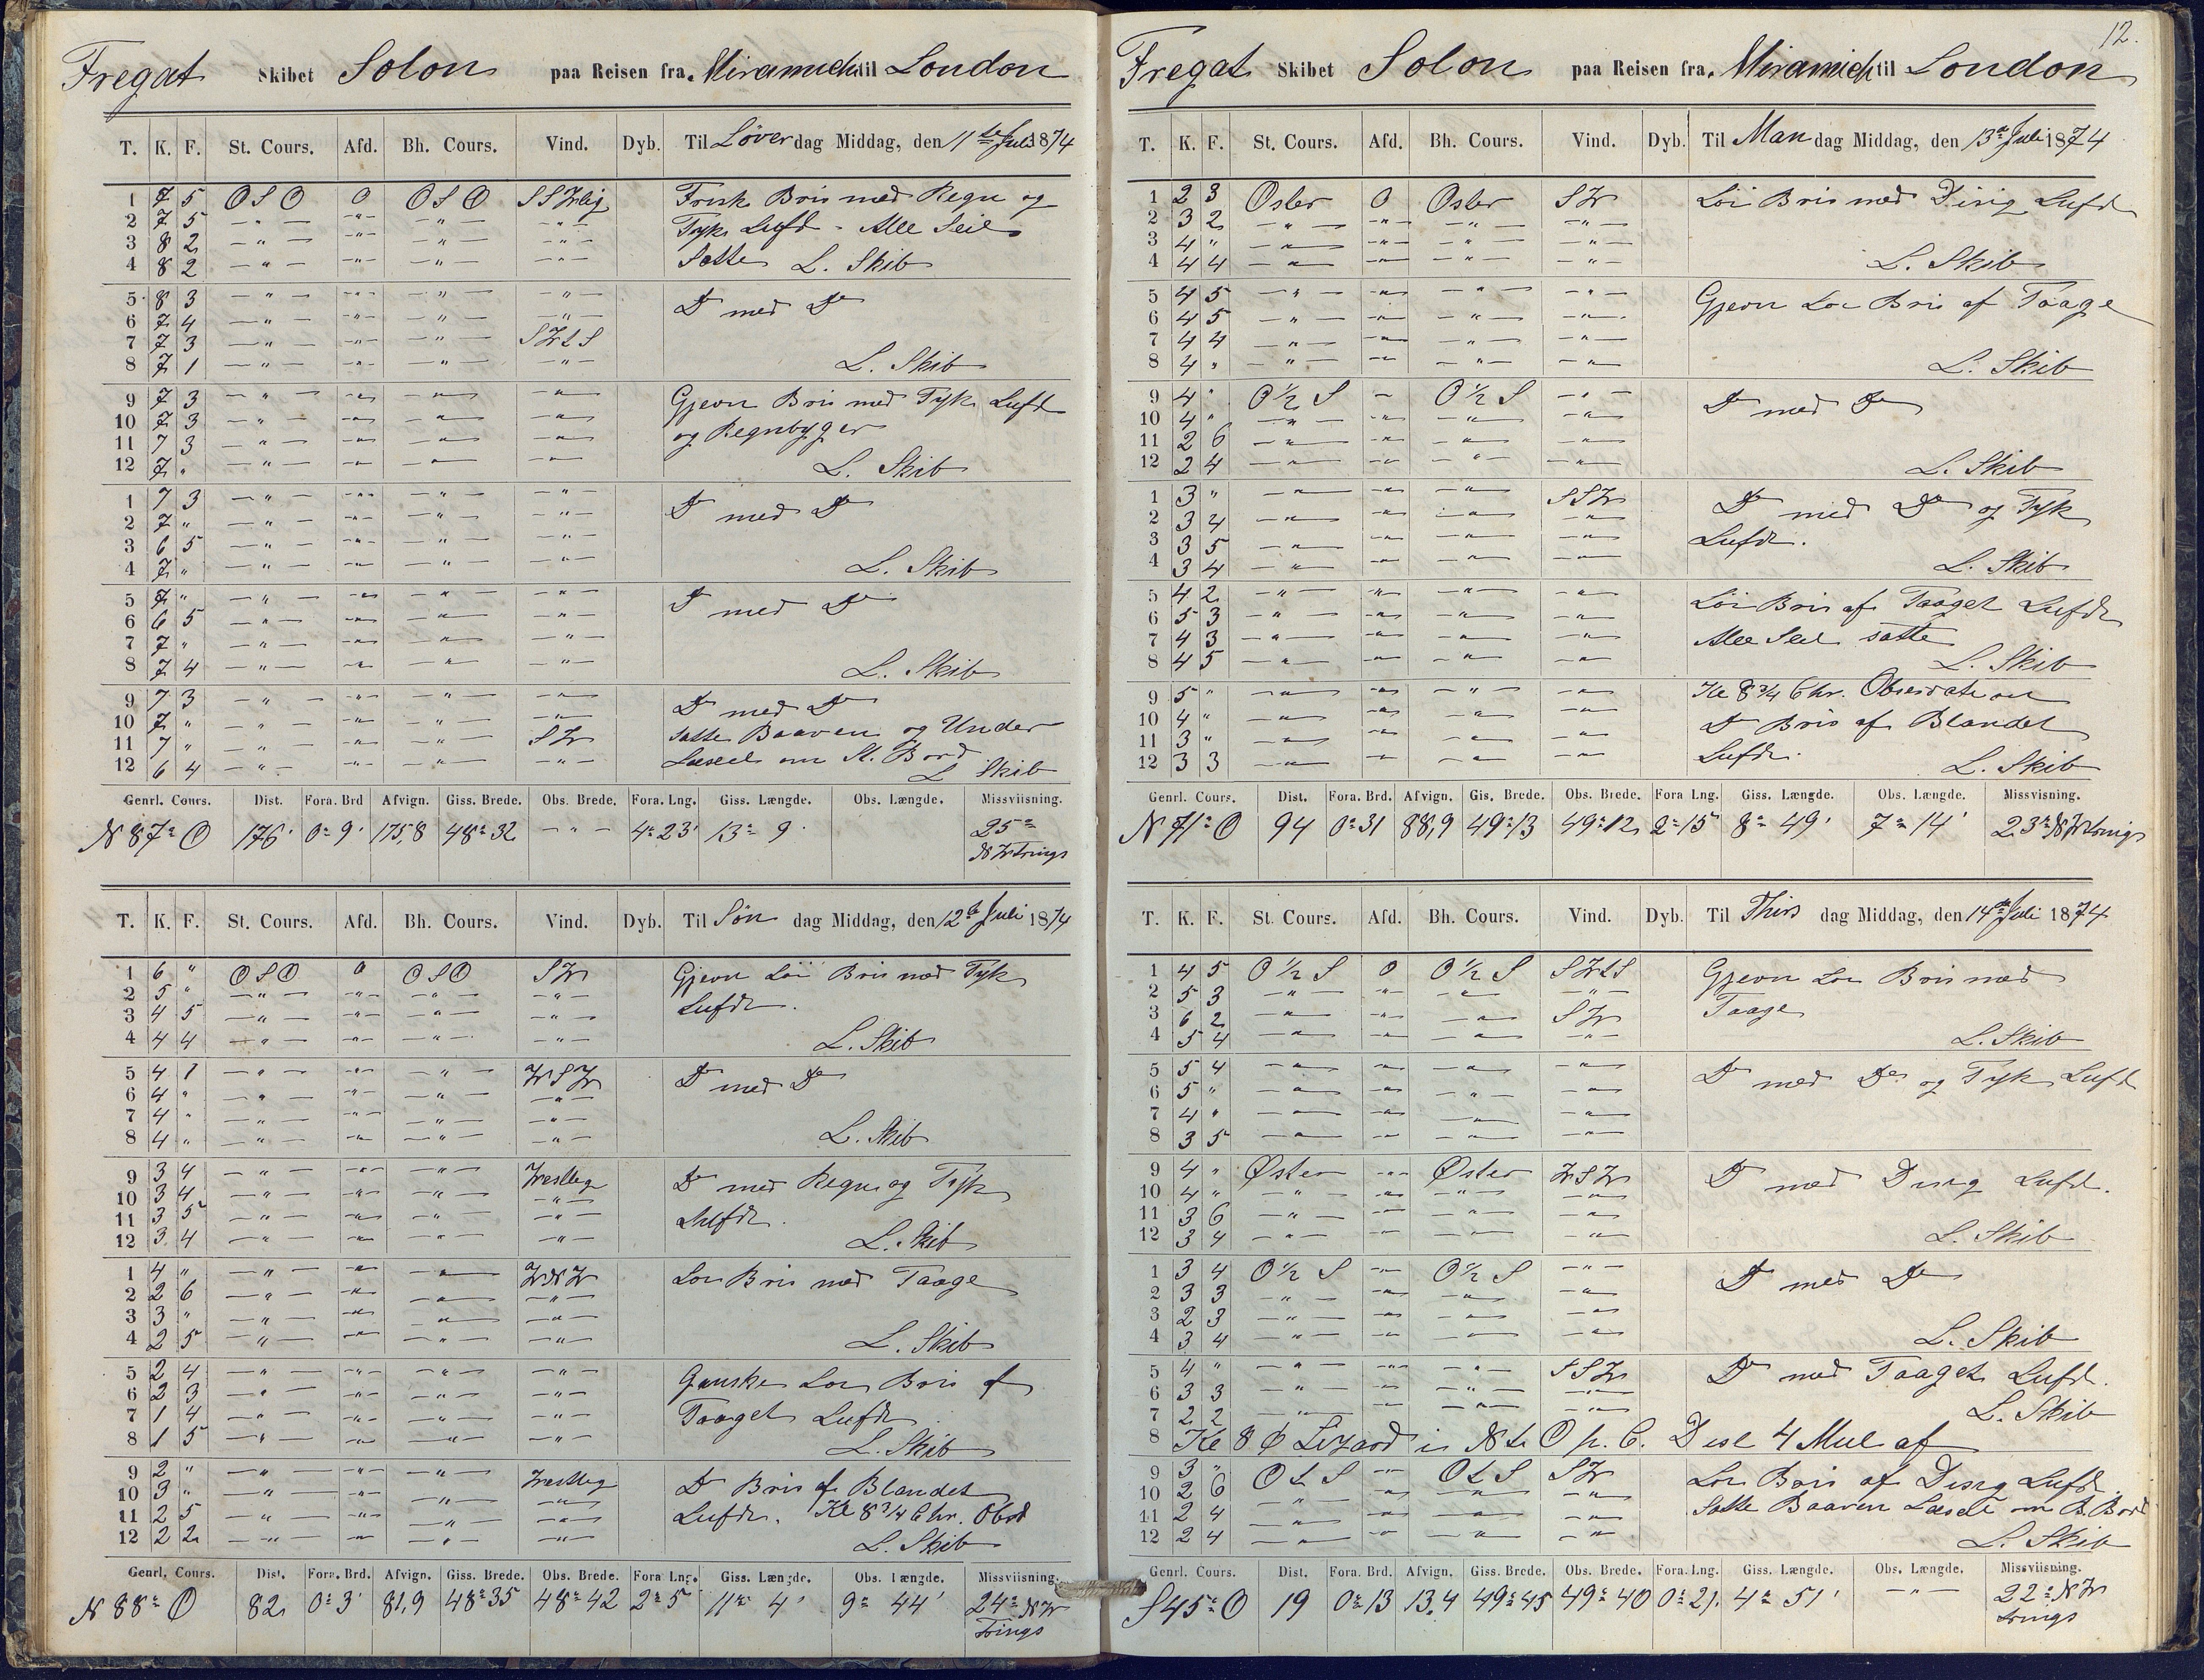 Fregat Skibet Solon paa Reisen fra Miramichi til London
T. K. F. St. Cours. Afd. Bh. Cours. Vind. Dyb. Til Løver dag Middag, den 11te Juli 1874
1 7 5 OSO 0 OSO SSWlig Frisk Bris med Regn og
2 7 5 —"— —"— —"— —"— Tyk Luft - Alle Seil
3 8 2 —"— —"— —"— —"—
4 8 2 —"— —"— —"— —"— Satte L. Skib
5 8 3 —"— —"— —"— —"— Do med Do
6 7 4 —"— —"— —"— —"—
7 7 3 —"— —"— —"— SWtS
8 7 1 —"— —"— —"— —"— L. Skib
9 7 3 —"— —"— —"— —"— Gjevn Bris med Tyk Luft
10 7 3 —"— —"— —"— —"— og Regnbyger
11 7 3 —"— —"— —"— —"—
12 7 " —"— —"— —"— —"— L. Skib
1 7 3 —"— —"— —"— —"— Do med Do
2 7 " —"— —"— —"— —"—
3 6 5 —"— —"— —"— —"—
4 7 " —"— —"— —"— —"— L. Skib
5 7 " —"— —"— —"— —"— Do med Do
6 6 5 —"— —"— —"— —"—
7 7 " —"— —"— —"— —"—
8 7 4 —"— —"— —"— —"— L. Skib
9 7 3 —"— —"— —"— —"— Do med Do
10 7 " —"— —"— —"— —"— Satte Baaven og Under
11 7 " —"— —"— —"— SW Læseil om St. Bord
12 6 4 —"— —"— —"— —"— L Skib
Genrl. Cours. Dist. Fora. Brd Afvign. Giss. Brede. Obs. Brede. Fora. Lng. Giss. Længde. Obs. Længde. Missviisning.
N 87° O 176' 0° 9' 175,8 48° 32 —"— 4° 23' 13° 9' 25°
NWtrings
T. K. F. St. Cours. Afd. Bh. Cours. Vind. Dyb. Til Søn dag Middag, den 12te Juli 1874
1 6 " OSO 0 OSO SW Gjevn Løi Bris med Tyk
2 5 " —"— —"— —"— —"— Luft.
3 4 5 —"— —"— —"— —"—
4 4 4 —"— —"— —"— —"— L. Skib
5 4 1 —"— —"— —"— WSW Do med Do
6 4 " —"— —"— —"— —"—
7 4 " —"— —"— —"— —"—
8 4 " —"— —"— —"— —"— L. Skib
9 3 4 —"— —"— —"— Westlig Do med Regn og Tyk
10 3 4 —"— —"— —"— —"—
11 3 5 —"— —"— —"— —"— Luft.
12 3 4 —"— —"— —"— —"— L. Skib
1 4 " —"— —"— —"— WNW Løi Bris med Taage
2 2 6 —"— —"— —"— —"—
3 3 " —"— —"— —"— —"—
4 2 5 —"— —"— —"— —"— L. Skib
5 2 4 —"— —"— —"— —"— Ganske Løi Bris af
6 2 3 —"— —"— —"— —"—
7 1 4 —"— —"— —"— —"— Taaget Luft
8 1 5 —"— —"— —"— —"— L. Skib
9 2 " —"— —"— —"— Westlig Do Bris af Blandet
10 3 " —"— —"— —"— —"—
11 2 5 —"— —"— —"— —"— Luft. Kl 8 3/4 Chr. Obst
12 2 2 —"— —"— —"— —"— L. Skib
Genrl. Cours. Dist. Fora. Brd. Afvign. Giss. Brede. Obs. Brede. Fora Lng. Giss. Længde. Obs. Længde. Missviisning.
N 88° O 82 0° 3' 81,9 48° 35 48° 42 2° 5 11° 4' 9° 44' 24° NW
trings
12.
Fregat Skibet Solon paa Reisen fra Miramichi til London
T. K. F. St. Cours. Afd. Bh. Cours. Vind. Dyb. Til Man dag Middag, den 13de Juli 1874
1 2 3 Oster 0 Oster SW Løi Bris med Disig Luft
2 3 2 —"— —"— —"— —"—
3 4 " —"— —"— —"— —"—
4 4 4 —"— —"— —"— —"— L. Skib
5 4 5 —"— —"— —"— —"— Gjevn Løi Bris af Taage
6 4 5 —"— —"— —"— —"—
7 4 4 —"— —"— —"— —"—
8 4 " —"— —"— —"— —"— L. Skib
9 4 " O½S — O½S —"— Do med Do
10 4 " —"— —"— —"— —"—
11 2 6 —"— —"— —"— —"—
12 2 4 —"— —"— —"— —"— L. Skib
1 3 " —"— —"— —"— SSW Do med Do og Tyk
2 3 4 —"— —"— —"— —"—
3 3 5 —"— —"— —"— —"— Luft.
4 3 4 —"— —"— —"— —"— L. Skib
5 4 2 —"— —"— —"— —"— Løi Bris af Taaget Luft
6 5 3 —"— —"— —"— —"—
7 4 3 —"— —"— —"— —"— Alle Seil satte
8 4 5 —"— —"— —"— —"— L. Skib
9 5 " —"— —"— —"— —"— Kl 8 3/4 Chr.
10 4 " —"— —"— —"— —"— Do Bris af Blandet
11 3 " —"— —"— —"— —"— Luft.
12 3 3 —"— —"— —"— —"— L. Skib
Genrl. Cours. Dist. Fora. Brd. Afvign. Gis. Brede. Obs. Brede. Fora Lng. Giss. Længde. Obs. Længde. Missvisning.
N 71° O 94 0° 31 88,9 49° 13 49° 12 2° 15' 8° 49' 7° 14' 23° NWtrings
T. K. F. St. Cours. Afd. Bh. Cours. Vind. Dyb. Til Thirs dag Middag, den 14de Juli 1874
1 4 5 O½S 0 O½S SWtS Gjevn Løi Bris med
2 5 3 —"— —"— —"— —"— Taage
3 6 2 —"— —"— —"— SW
4 5 4 —"— —"— —"— —"— L. Skib
5 5 4 —"— —"— —"— —"— Do med Do og Tyk Luft
6 5 " —"— —"— —"— —"—
7 4 " —"— —"— —"— —"—
8 3 5 —"— —"— —"— —"—
9 4 " Øster —"— Øster WSW Do med Disig Luft.
10 4 " —"— —"— —"— —"—
11 3 6 —"— —"— —"— —"—
12 3 4 —"— —"— —"— —"— L. Skib
1 3 4 O½S —"— O½S —"— Do med Do
2 3 3 —"— —"— —"— —"—
3 2 3 —"— —"— —"— —"—
4 3 4 —"— —"— —"— —"— L. Skib
5 4 " —"— —"— —"— SSW Do med Taaget Luft.
6 3 3 —"— —"— —"— —"—
7 2 2 —"— —"— —"— —"— L. Skib
8 Kl 8 Lizard i NtO p. C. Dist 4 Mil af
9 3 " OtS —"— OtS SW Løi Bris af Disig Luft
10 2 6 —"— —"— —"— —"— Satte Baaven Læseil om B.Bord
11 2 4 —"— —"— —"— —"—
12 2 4 —"— —"— —"— —"— L. Skib
Genrl. Cours. Dist. Fora. Brd. Afvign. Giss. Brede. Obs. Brede. Fora. Lng. Giss. Længde. Obs. Længde. Missviisning.
S 45° O 19 0° 13 13,4 49° 45 49° 40 0° 21' 4° 51' —"— 22° NW
trings